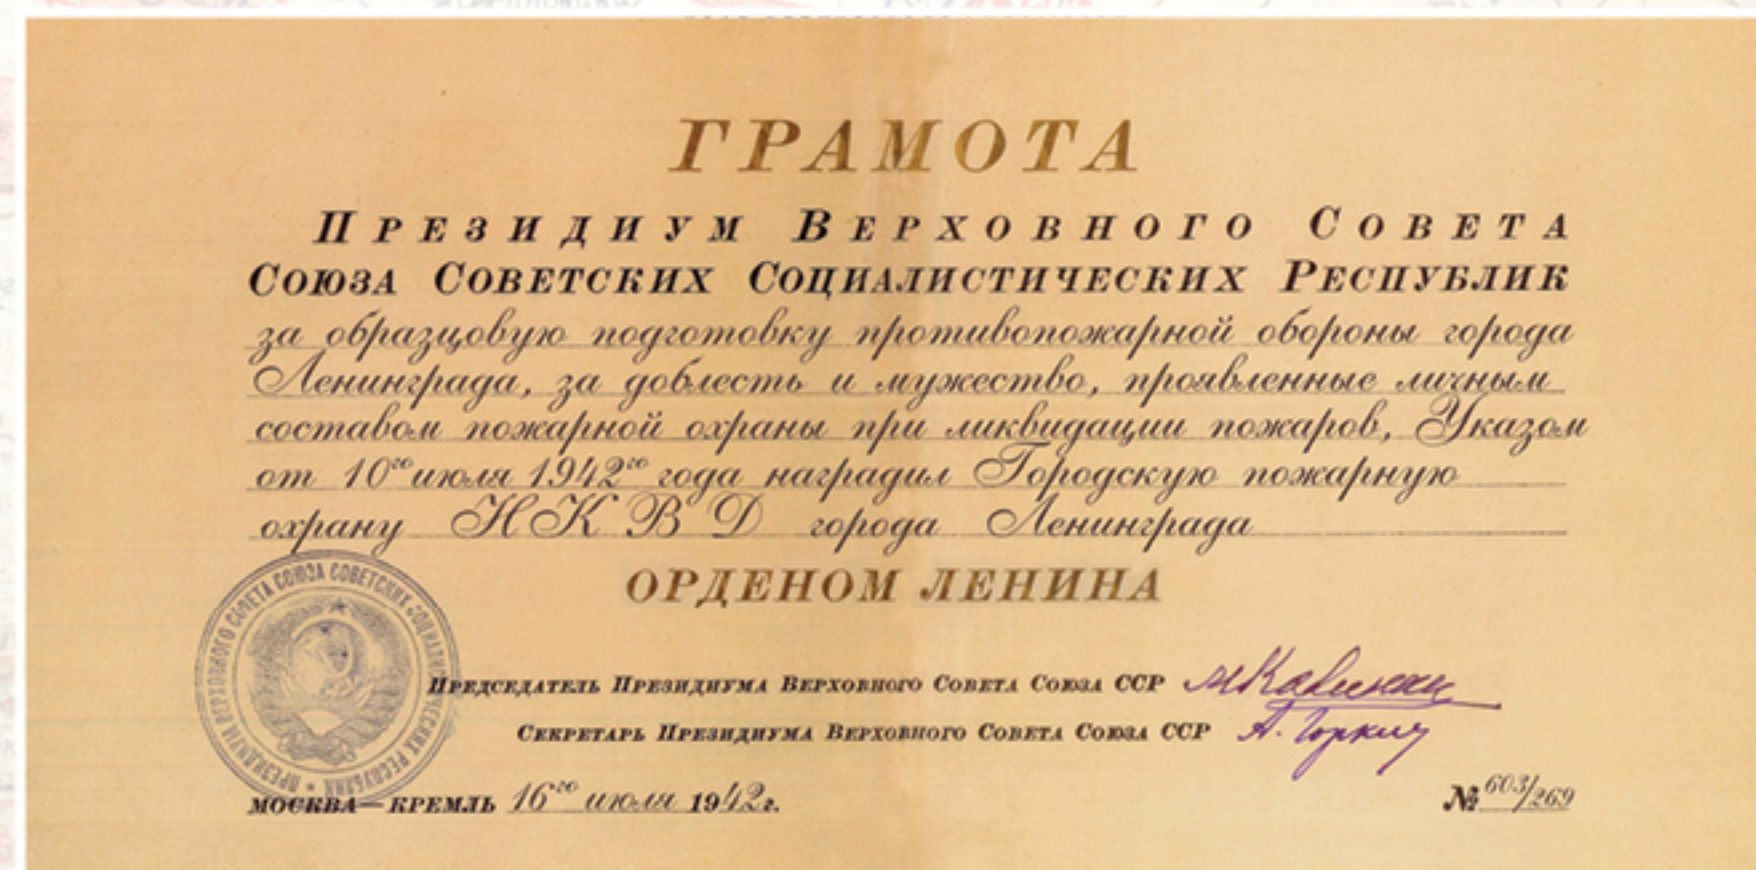 ГРАМОТА
ПРЕЗИДИУМ ВЕРХОВНОГО СОВЕТА
СОЮЗА СОВЕТСКИХ СОЦИАЛИСТИЧЕСКИХ РЕСПУБЛИК
за образцовую подготовку противопожарной обороны города
Ленинграда, за доблесть и мужество, проявленные личным
составом пожарной охраны при ликвидации пожаров, Указом
от 10го июля 1942го года наградил Городскую пожарную
охрану НКВД города Ленинграда
ОРДЕНОМ ЛЕНИНА
ПРЕЗИДИУМ ВЕРХОВНОГО СОВЕТА СОЮЗА СОВЕТСКИХ СОЦИАЛИСТИЧЕСКИХ РЕСПУБЛИК
ПРЕДСЕДАТЕЛЬ ПРЕЗИДИУМА ВЕРХОВНОГО СОВЕТА СОЮЗА ССР МКалинин
СЕКРЕТАРЬ ПРЕЗИДИУМА ВЕРХОВНОГО СОВЕТА СОЮЗА ССР А. Горкин
МОСКВА—КРЕМЛЬ 16го июля 1942г.
№ 603/269